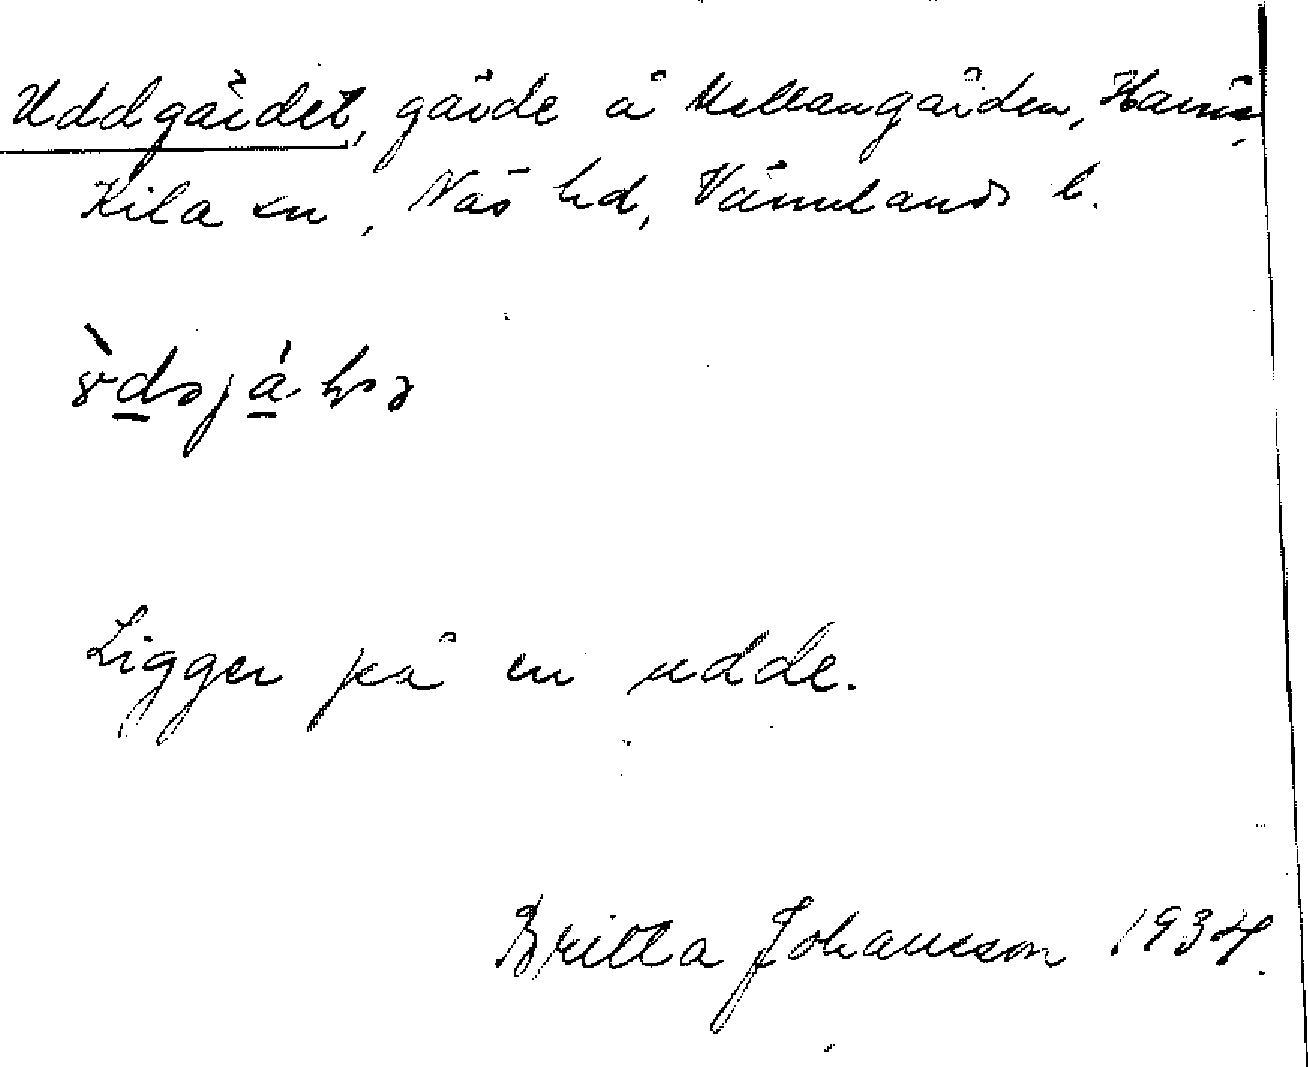 Uddgärdet, gärde å Mellangården,
Kila sn, Näs hd, Värmlands l.
Ligger på en udde.
Britta Johansson 1934.